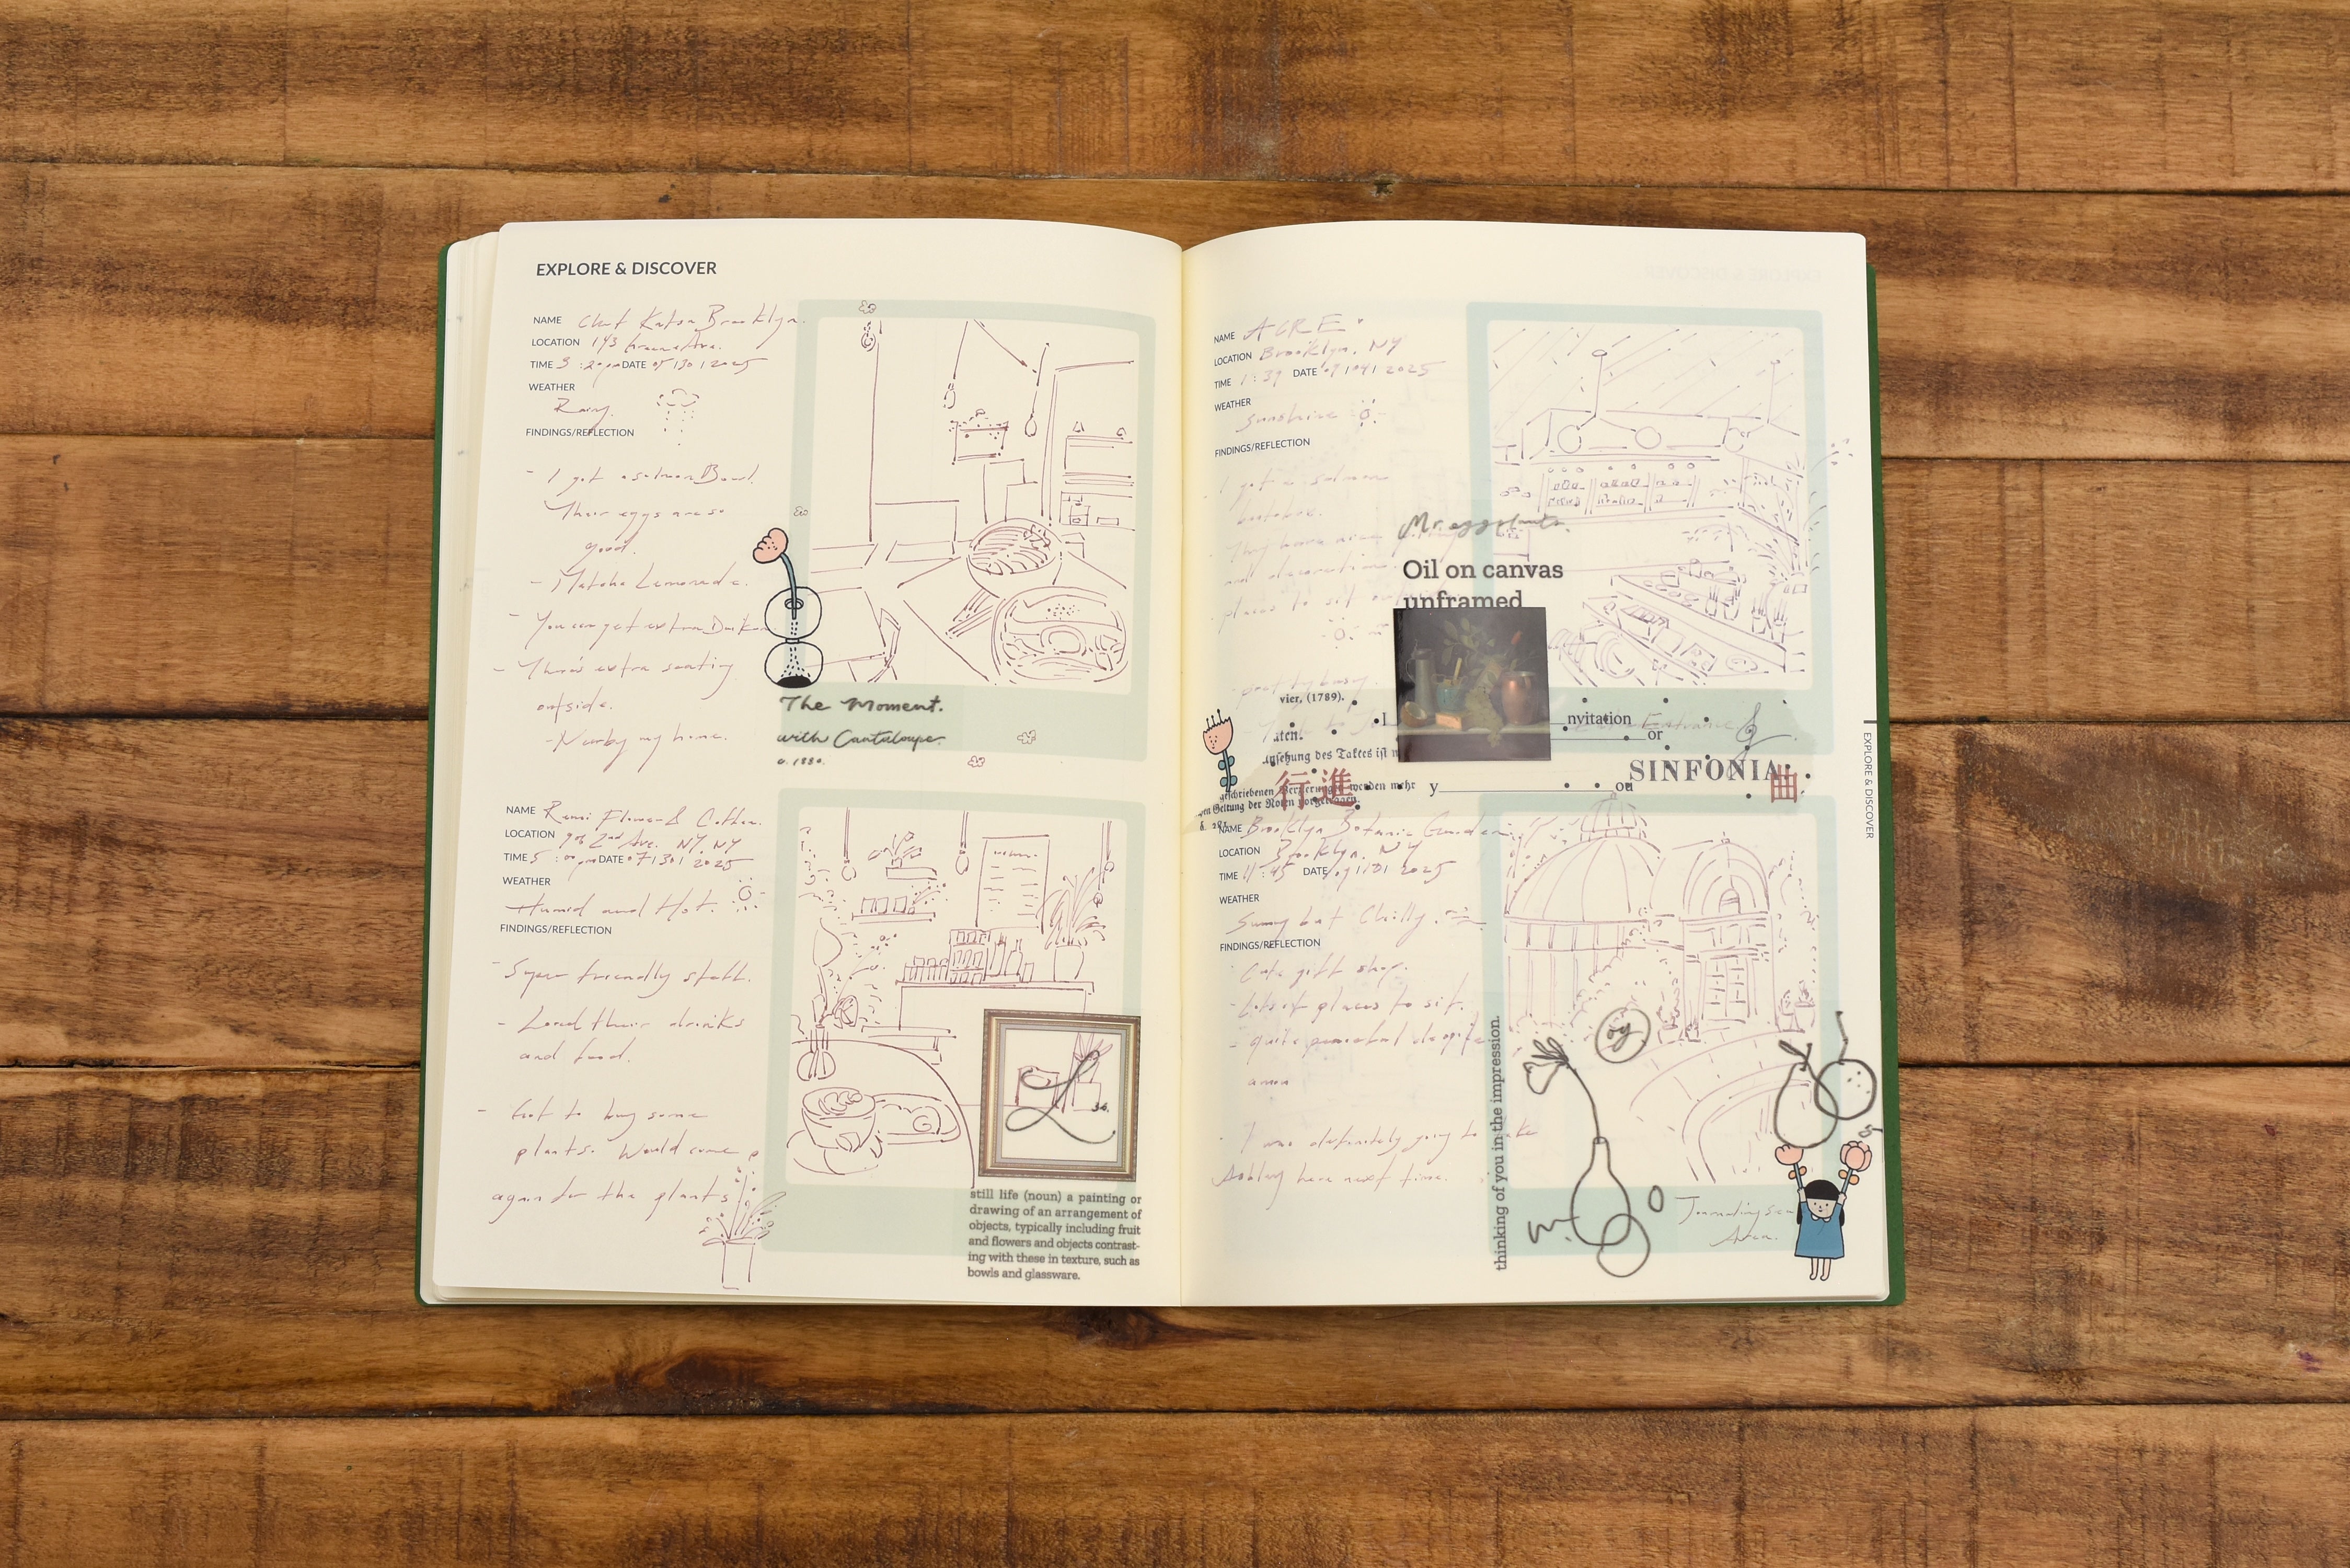 EXPLORE & DISCOVER
NAME Brooklyn.
LOCATION 193 Greene Ave.
TIME 3:20pm DATE 05/30/2025
WEATHER
Rainy.
FINDINGS/REFLECTION
- I got a salmon Bowl.
Their eggs are so
good.
- Matcha Lemonade.
- You can get extra
- There's extra seating
outside.
- Nearby my home.
The Moment.
with Cantaloupe
c. 1880.
NAME Flower & Coffee.
LOCATION 906 2nd Ave. NY, NY
TIME 5:00pm DATE 07/30/2025
WEATHER
Humid and Hot.
FINDINGS/REFLECTION
- Super friendly staff.
- Loved their drinks
and food.
- Got to buy some
plants. Would come
again for the plants
36.
still life (noun) a painting or
drawing of an arrangement of
objects, typically including fruit
and flowers and objects contrast-
ing with these in texture, such as
bowls and glassware.
NAME ACRE
LOCATION Brooklyn, NY
TIME 1:39 DATE 09/04/2025
WEATHER
Sunshine
FINDINGS/REFLECTION
I got a salmon
bentobox.
They have nice
and decoration.
places to sit
Mr. eggplants.
Oil on canvas
unframed
vier, (1789).
nvitation
Entrance
aten.
or
nsehung des Taktes ist
SINFONIA
行進
曲
geschriebenen werden mehr
y ou
Geltung der Noten vorgetragen.
NAME Brooklyn Botanic Garden
LOCATION Brooklyn, NY
TIME 11:45 DATE 2025
WEATHER
Sunny but Chilly.
FINDINGS/REFLECTION
Cute gift shop.
- Lots of places to sit.
- quite peaceful despite
I was definitely going to take
Ashley here next time.
thinking of you in the impression.
oy
EXPLORE & DISCOVER